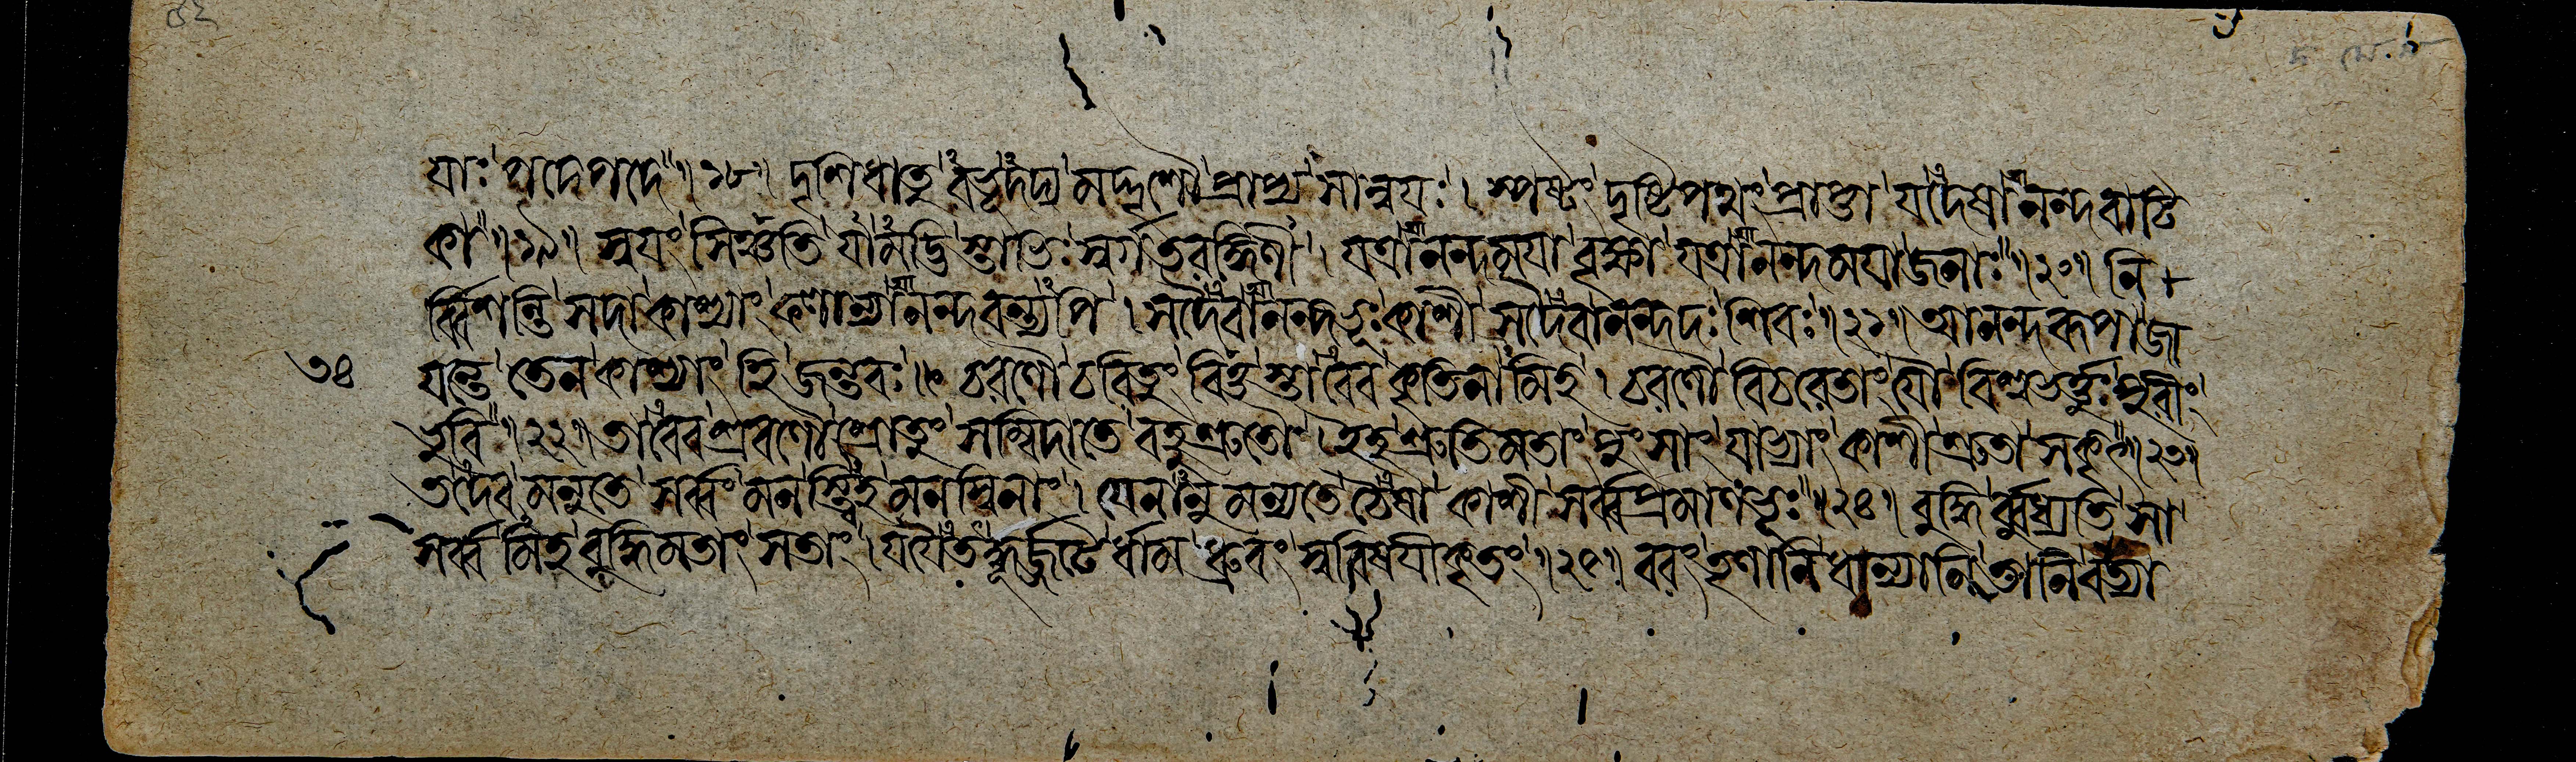 যাঃ পদেপদে ॥ ১৮ ॥ দৃশিধাতু র্বভূবাদ্য মদ্দৃশৌ প্রাপ্য সান্বয়ঃ । স্পষ্টং দৃষ্টিপথং প্রাপ্তা যদেষা নন্দবাটি
কা ॥ ১৯ ॥ স্বয়ং সিঞ্চতি যা মদ্ভি স্তাভিঃ স্বর্গতরঙ্গিণী । যত্রানন্দময়া বৃক্ষা যত্রানন্দময়া জনাঃ ॥ ২০ ॥ নি
র্ব্বিশন্তি সদা কাশ্যাং ফলান্যানন্দবন্ত্যপি । সদৈবানন্দভূঃ কাশী সদৈবানন্দদঃ শিবঃ ॥ ২১ ॥ আনন্দরূপা জা
৩৪ যন্তে তেন কাশ্যাং হি জন্তবঃ । চরণৌ চরিতুং বিত্ত স্তাবেব কৃতিনামিহ । চরণৌ বিচরেতাং যৌ বিশ্বভর্ত্তুঃ পুরীং
ভুবি ॥ ২২ ॥ তাবেব শ্রবণৌ শ্রোতুং সম্বিদাতে বহুশ্রুতৌ । ইহ শ্রুতিমতাং পুংসাং যাভ্যাং কাশী শ্রুতা সকৃৎ ॥ ২৩ ॥
তদেব মনুতে সর্ব্বং মনস্ত্বিহ মনস্বিনাং । যেনানু মন্যতে চৈষা কাশী সর্ব্বপ্রমাণভূঃ ॥ ২৪ ॥ বুদ্ধি র্বুধ্যতি সা
সর্ব্ব মিহ বুদ্ধিমতাং সতাং । যযৈতদ্ধূর্জ্জটে র্ধাম ধ্রুবং স্ববিষয়ীকৃতং ॥ ২৫ ॥ বরং তৃণানি ধান্যানি তানি বাত্যা